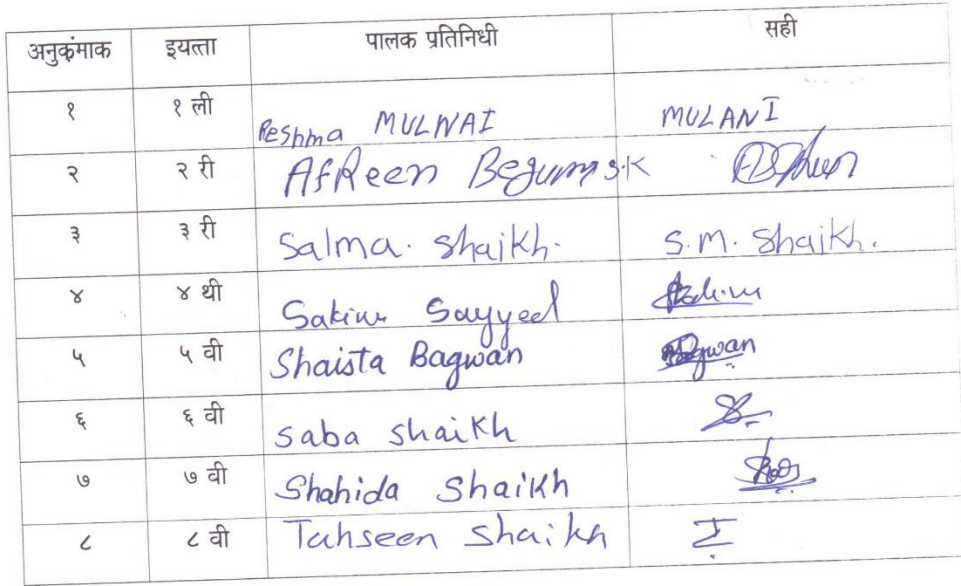 अनुकंमाक इयत्ता पालक प्रतिनिधी सही
१ १ ली Reshma MULNAI MULANI
२ २ री Afreen Begum s.k
३ ३ री Salma. Shaikh. S.M. Shaikh.
४ ४ थी Sakina Sayyed
५ ५ वी Shaista Bagwan Bagwan
६ ६ वी saba shaikh
७ ७ वी Shahida Shaikh
८ ८ वी Tahseen Shaikh